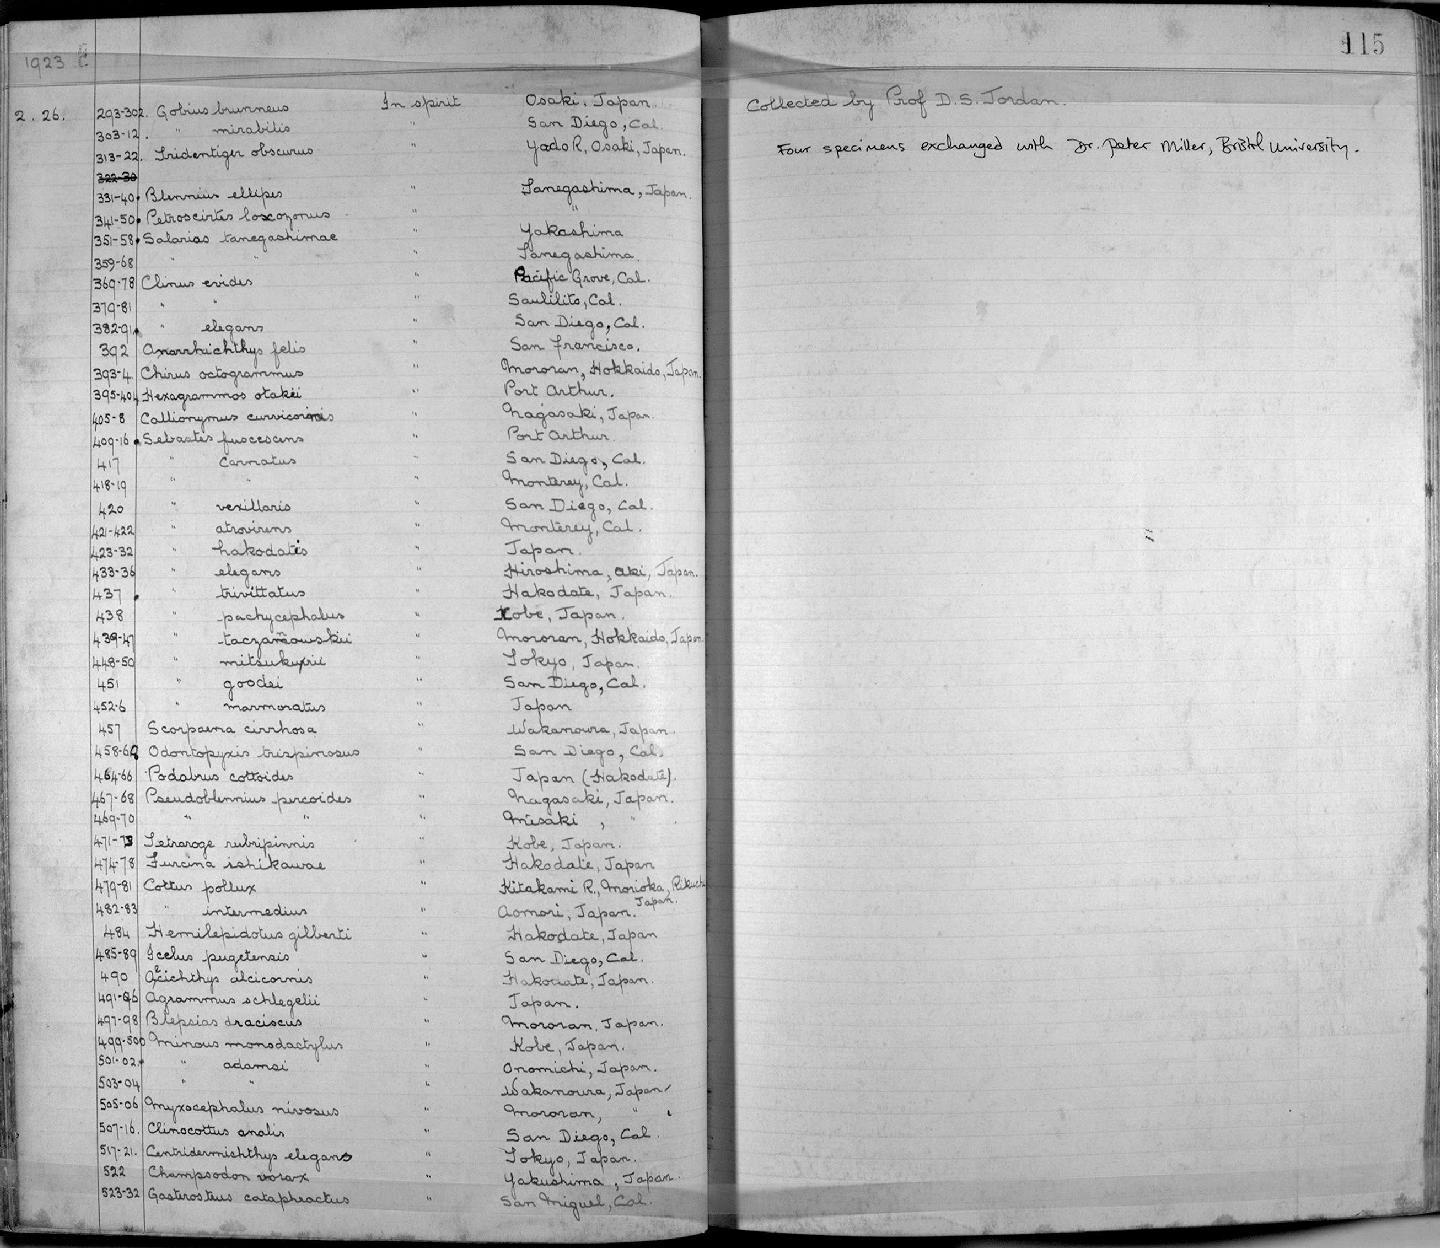 1923
115
2.26. 293-302. Gobius brunneus In spirit Osaki. Japan. Collected by Prof D.S. Jordan.
303-12. " mirabilis " San Diego, Cal.
313-22. Tridentiger obscurus " Yodo R, Osaki, Japan. Four specimens exchanged with Dr. Peter Miller, Bristol University.
322-30
331-40. Blennius ellipes " Tanegashima, Japan.
341-50. Petroscirtes loxozonus " "
351-58. Salarias tanegashimae " Yakashima
359-68 " " " Tanegashima.
369-78 Clinus evides " Pacific Grove, Cal.
379-81 " " " Saulilito, Cal.
382-91. " elegans " San Diego, Cal.
392 Anarrhichthys felis " San Francisco.
393-4 Chirus octogrammus " Mororan, Hokkaido, Japan.
395-404 Hexagrammos otakii " Port Arthur.
405-8 Callionymus curvicornis " Nagasaki, Japan.
409-16. Sebastes fuscescens " Port Arthur.
417 " carnatus " San Diego, Cal.
418-19 " " Monterey, Cal.
420 " vexillaris " San Diego, Cal.
421-422 " atrovirens " Monterey, Cal.
423-32 " hakodatis " Japan.
433-36 " elegans " Hiroshima, Aki, Japan.
437. " trivittatus " Hakodate, Japan.
438 " pachycephalus " Kobe, Japan.
439-47 " taczanowskii " Mororan, Hokkaido, Japan.
448-50 " mitsukurii " Tokyo, Japan.
451 " goodei " San Diego, Cal.
452-6 " marmoratus " Japan
457 Scorpaena cirrhosa " Wakanoura, Japan.
458-62 Odontopyxis trispinosus " San Diego, Cal.
464-66 Podabrus cottoides " Japan (Hakodate).
467-68 Pseudoblennius percoides " Nagasaki, Japan.
469-70 " " Misaki, " .
471-73 Tetraroge rubripinnis " Kobe, Japan.
474-78 Furcina ishikawae " Hakodate, Japan
479-81 Cottus pollux " Kitakami R., Morioka, Rikuch
Japan.
482-83 " intermedius " Aomori, Japan.
484 Hemilepidotus gilberti " Hakodate, Japan
485-89 Icelus pugetensis " San Diego, Cal.
490 Alcichthys alcicornis " Hakodate, Japan.
491-96 Agrammus schlegelii " Japan.
497-98 Blepsias draciscus " Mororan, Japan.
499-500 Minous monodactylus " Kobe, Japan.
501-02. " adamsi " Onomichi, Japan.
503-04 " " " Wakanoura, Japan
505-06 Myxocephalus nivosus " Mororan, "
507-16. Clinocottus analis " San Diego, Cal.
517-21. Centridermichthys elegans " Tokyo, Japan.
522 Champsodon vorax " Yakushima, Japan.
523-32 Gasterosteus cataphractus " San Miguel, Cal.